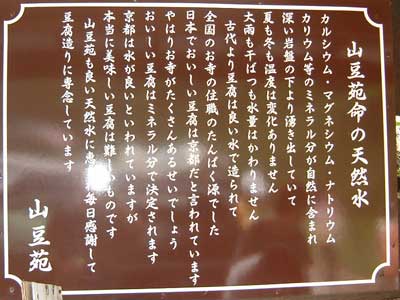 山豆苑命の天然水
カルシウム・マグネシウム・ナトリウム
カリウム等のミネラル分が自然に含まれ
深い岩盤の下より湧き出していて
夏も冬も温度は変化ありません
大雨も干ばつも水量はかわりません
古代より豆腐は良い水で造られて
全国のお寺の住職のたんぱく源でした
日本でおいしい豆腐は京都だと言われています
やはりお寺がたくさんあるせいでしょう
おいしい豆腐はミネラル分で決定されます
京都は水が良いといわれていますが
本当に美味しい豆腐は難しいものです
山豆苑も良い天然水に恵まれ毎日感謝して
豆腐造りに専念しています
山豆苑